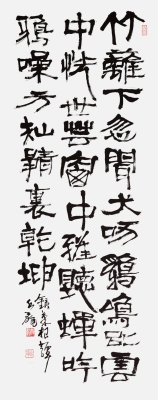 竹籬下忽聞犬吠鷄鳴恍似雲
中世界芸窗中雅聽蟬吟
鴉噪方知靜裏乾坤
錄菜根譚